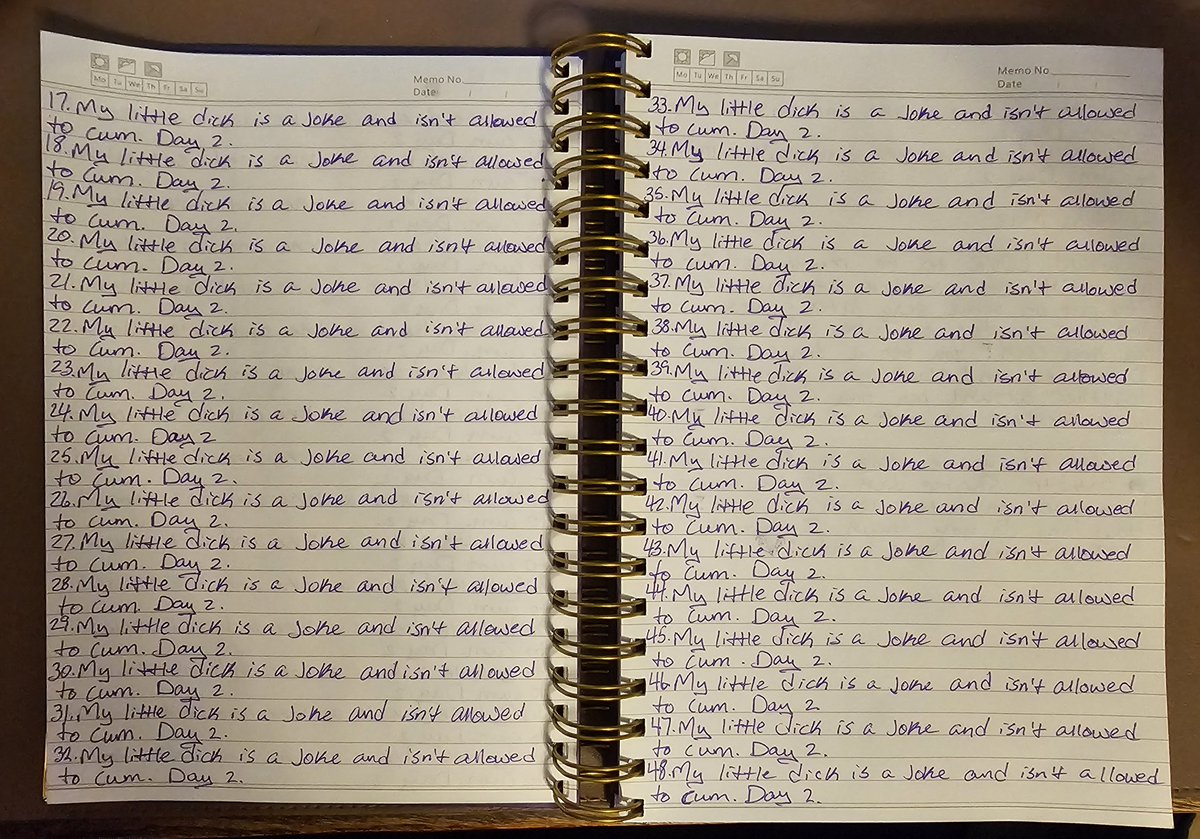 Mo Tu We Th Fr Sa Su
Memo No.
Date / /
17. My little dick is a Joke and isn't allowed
to cum. Day 2.
18. My little dick is a Joke and isn't allowed
to cum. Day 2.
19. My little dick is a Joke and isn't allowed
to cum. Day 2.
20. My little dick is a Joke and isn't allowed
to cum. Day 2.
21. My little dick is a Joke and isn't allowed
to cum. Day 2.
22. My little dick is a Joke and isn't allowed
to cum. Day 2.
23. My little dick is a Joke and isn't allowed
to cum. Day 2.
24. My little dick is a Joke and isn't allowed
to cum. Day 2
25. My little dick is a Joke and isn't allowed
to cum. Day 2.
26. My little dick is a Joke and isn't allowed
to cum. Day 2.
27. My little dick is a Joke and isn't allowed
to cum. Day 2.
28. My little dick is a Joke and isn't allowed
to cum. Day 2.
29. My little dick is a Joke and isn't allowed
to cum. Day 2.
30. My little dick is a Joke and isn't allowed
to cum. Day 2.
31. My little dick is a Joke and isn't allowed
to cum. Day 2.
32. My little dick is a Joke and isn't allowed
to cum. Day 2.
Mo Tu We Th Fr Sa Su
Memo No.
Date / /
33. My little dick is a Joke and isn't allowed
to cum. Day 2.
34. My little dick is a Joke and isn't allowed
to cum. Day 2.
35. My little dick is a Joke and isn't allowed
to cum. Day 2.
36. My little dick is a Joke and isn't allowed
to cum. Day 2.
37. My little dick is a Joke and isn't allowed
to cum. Day 2.
38. My little dick is a Joke and isn't allowed
to cum. Day 2.
39. My little dick is a Joke and isn't allowed
to cum. Day 2.
40. My little dick is a Joke and isn't allowed
to cum. Day 2.
41. My little dick is a Joke and isn't allowed
to cum. Day 2.
42. My little dick is a Joke and isn't allowed
to cum. Day 2.
43. My little dick is a Joke and isn't allowed
to cum. Day 2.
44. My little dick is a Joke and isn't allowed
to cum. Day 2.
45. My little dick is a Joke and isn't allowed
to cum. Day 2.
46. My little dick is a Joke and isn't allowed
to cum. Day 2
47. My little dick is a Joke and isn't allowed
to cum. Day 2.
48. My little dick is a Joke and isn't allowed
to cum. Day 2.